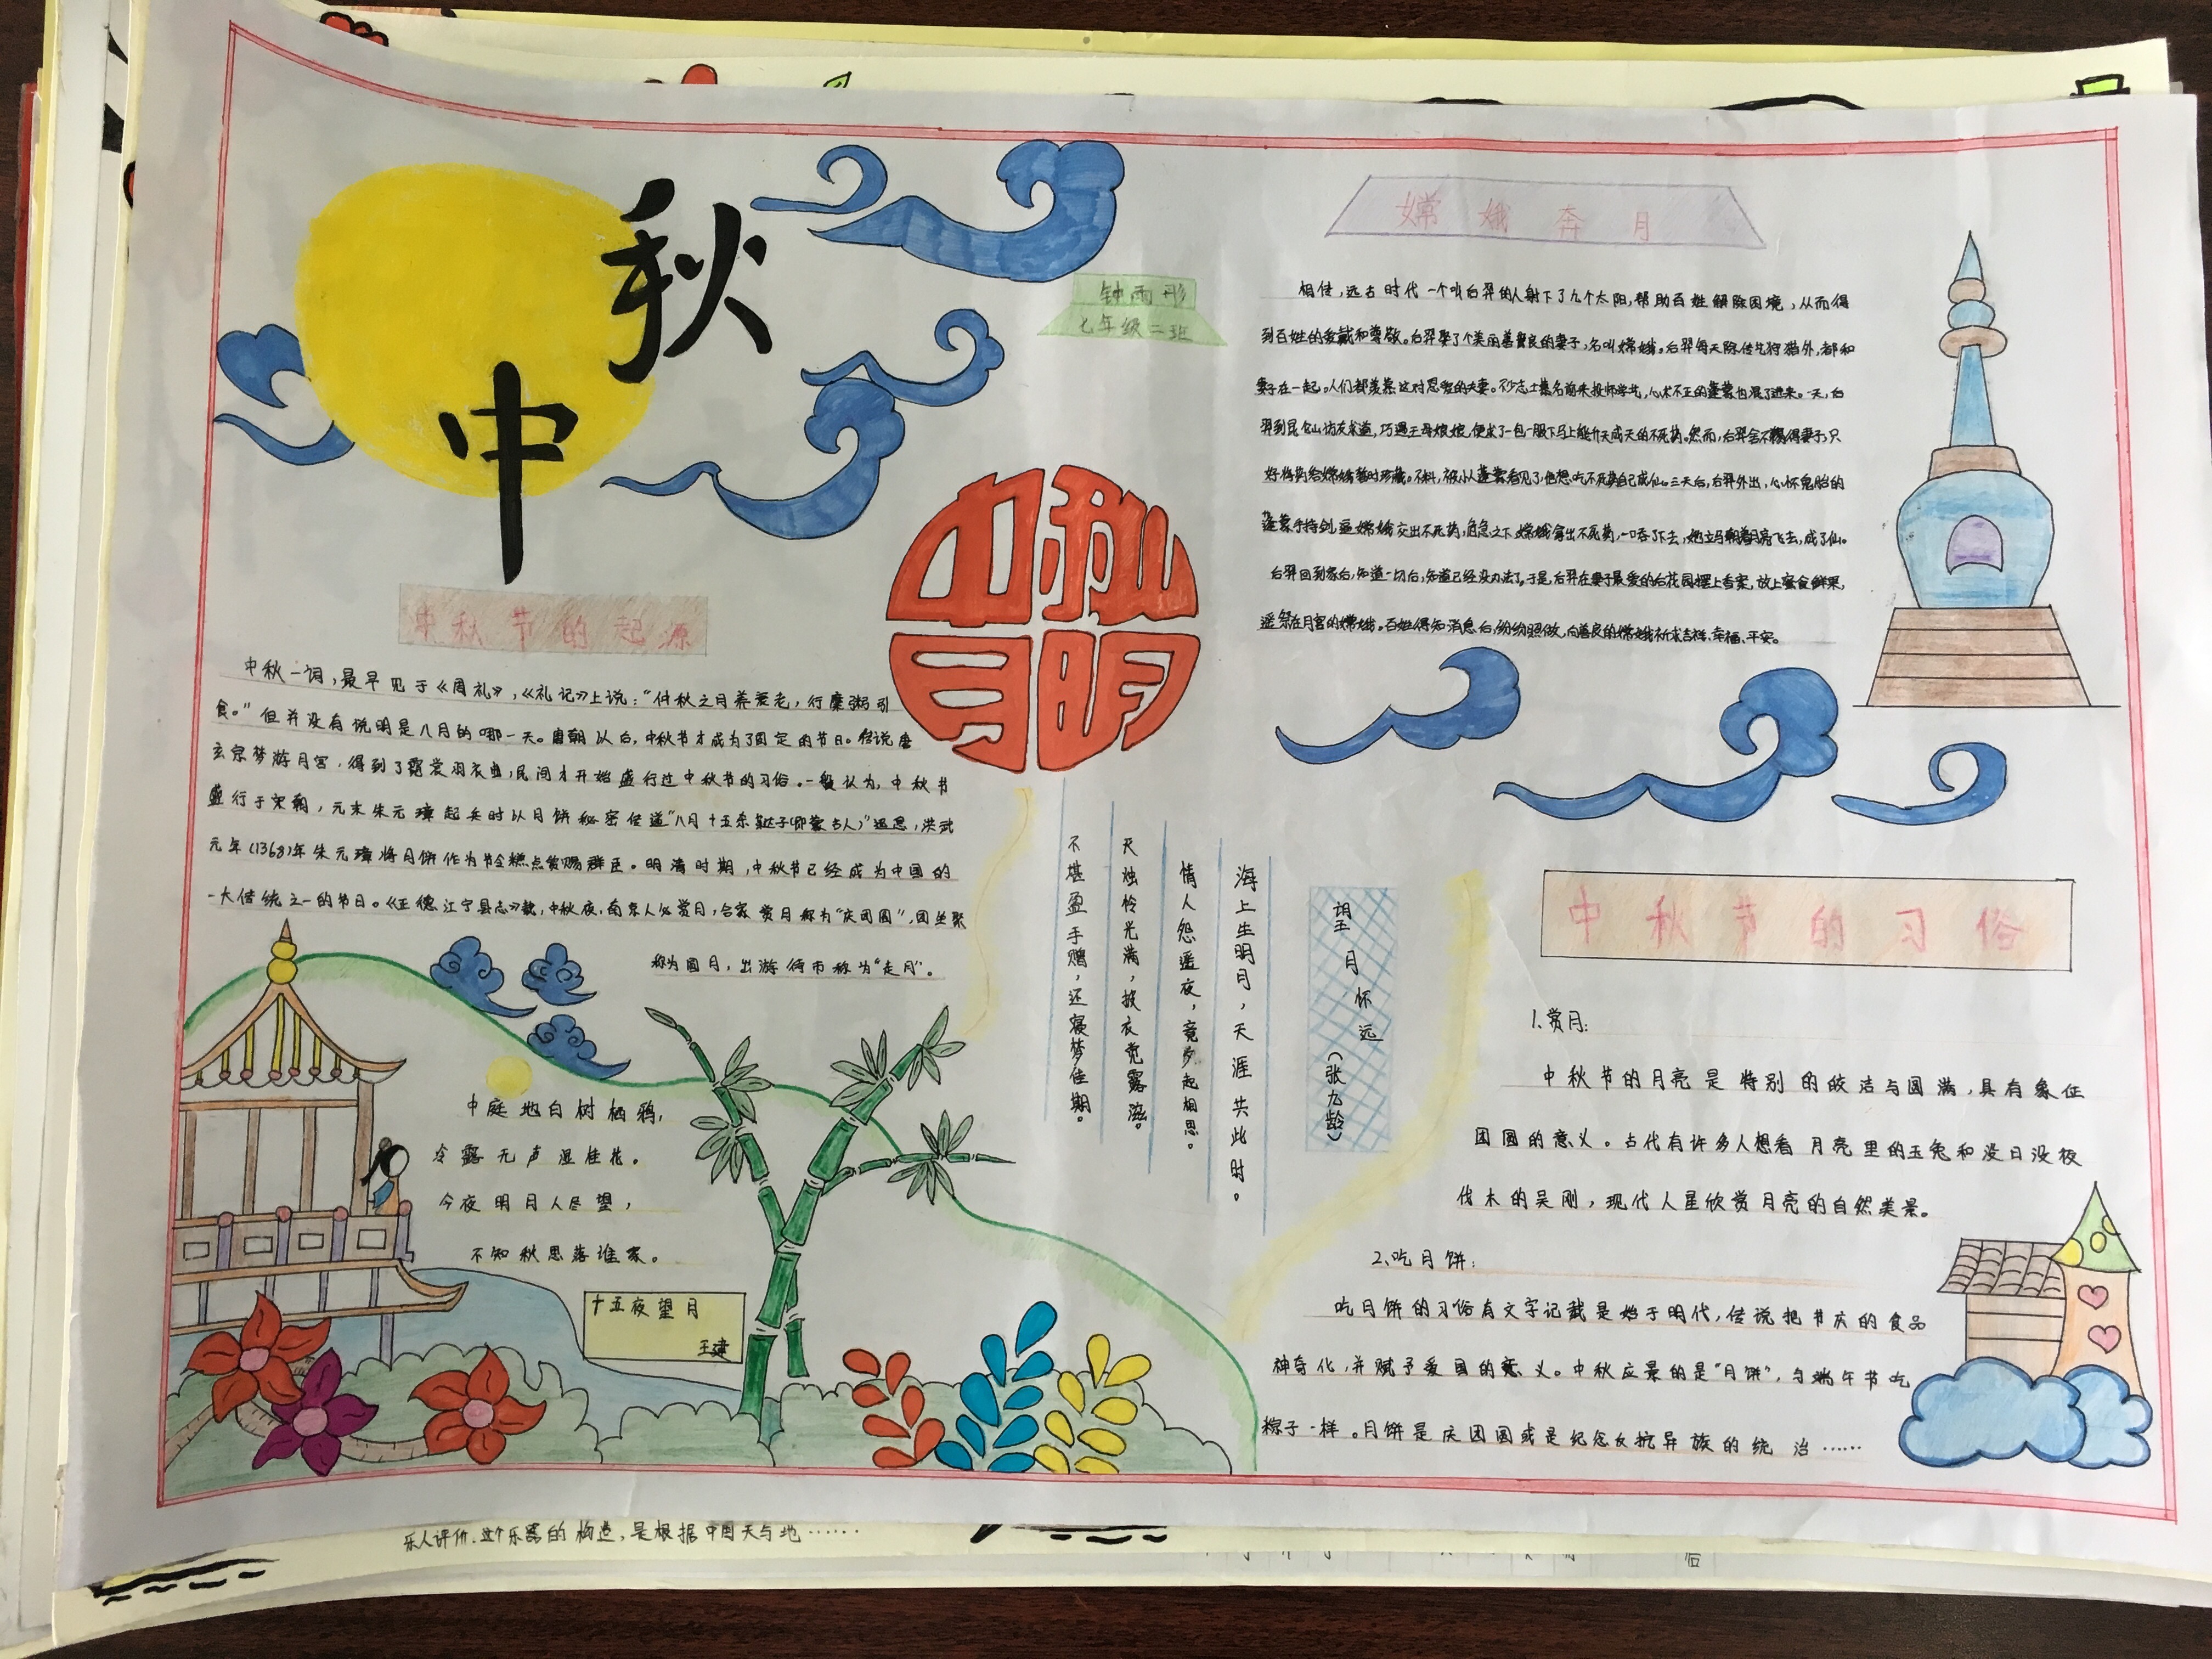 中秋
中秋
月明
钟雨彤
七年级二班
中秋节的起源
中秋一词,最早见于《周礼》,《礼记》上说:"仲秋之月养衰老,行糜粥引
食。"但并没有说明是八月的哪一天。唐朝以后,中秋节才成为了固定的节日。传说唐
玄宗梦游月宫,得到了霓裳羽衣曲,民间才开始盛行过中秋节的习俗。一般认为,中秋节
盛行于宋朝,元末朱元璋起兵时以月饼秘密传道"八月十五杀鞑子(即蒙古人)"
元年(1368)年朱元璋将月饼作为节令糕点赏赐群臣。明清时期,中秋节已经成为中国的
一大传统之一的节日。《正德江宁县志》载,中秋夜,南京人必赏月,合家赏月称为"庆团圆",团坐聚
称为圆月,出游街市称为"走月"。
中庭地白树栖鸦,
冷露无声湿桂花。
今夜明月人尽望,
不知秋思落谁家。
十五夜望月
王建
望月怀远(张九龄)
海上生明月,天涯共此时。
情人怨遥夜,竟夕起相思。
灭烛怜光满,披衣觉露滋。
不堪盈手赠,还寝梦佳期。
嫦娥奔月
相传,远古时代一个叫后羿的人射下了九个太阳,帮助百姓解除困境,从而得
到百姓的爱戴和尊敬。后羿娶了个美丽善良的妻子,名叫嫦娥。后羿每天除传艺狩猎外,都和
妻子在一起。人们都羡慕这对恩爱的夫妻。不少志士慕名前来投师学艺,心术不正的蓬蒙也混了进来。一天,后
羿到昆仑山访友求道,巧遇王母娘娘,便求了一包一服下马上能升天成天的不死药。然而,后羿舍不得妻子,只
好将药给嫦娥暂时珍藏。不料,被小人蓬蒙看见了,他想吃不死药自己成仙。三天后,后羿外出,心怀鬼胎的
蓬蒙手持剑,逼嫦娥交出不死药,危急之下嫦娥拿出不死药,一口吞了下去,她立马朝着月亮飞去,成了仙。
后羿回到家后,知道一切后,知道已经没办法了。于是,后羿在妻子最爱的后花园摆上香案,放上蜜食鲜果,
遥祭在月宫的嫦娥。百姓得知消息后,纷纷照做,向善良的嫦娥祈求吉祥、幸福、平安。
中秋节的习俗
1.赏月:
中秋节的月亮是特别的皎洁与圆满,具有象征
团圆的意义。古代有许多人想看月亮里的玉兔和没日没夜
伐木的吴刚,现代人是欣赏月亮的自然美景。
2.吃月饼:
吃月饼的习俗有文字记载是始于明代,传说把节庆的食品
神奇化,并赋予爱国的意义。中秋应景的是"月饼",与端午节吃
粽子一样。月饼是庆团圆或是纪念反抗异族的统治……
乐人评价.这个乐器的构造,是根据中国天与地……